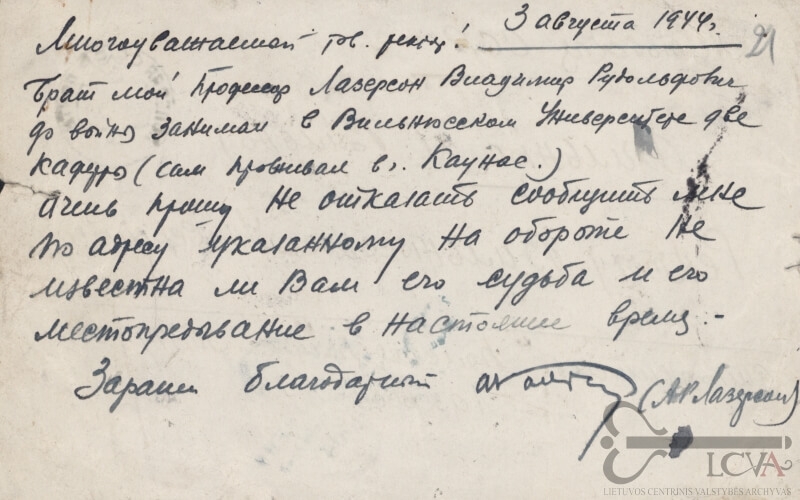 3 августа 1944 г.
21
Многоуважаемой тов. ректор!
Брат мой Профессор Лазерсон Владимир Рудольфович
до войны занимал в Вильнюсском Университете две
кафедры (сам проживал в г. Каунас.)
Очень прошу не отказать сообщить мне
по адресу указанному на обороте не
известна ли Вам его судьба и его
местопребывание в настоящее время. -
Заранее благодарный
(А Р Лазерсон)
LCVA
LIETUVOS CENTRINIS VALSTYBĖS ARCHYVAS